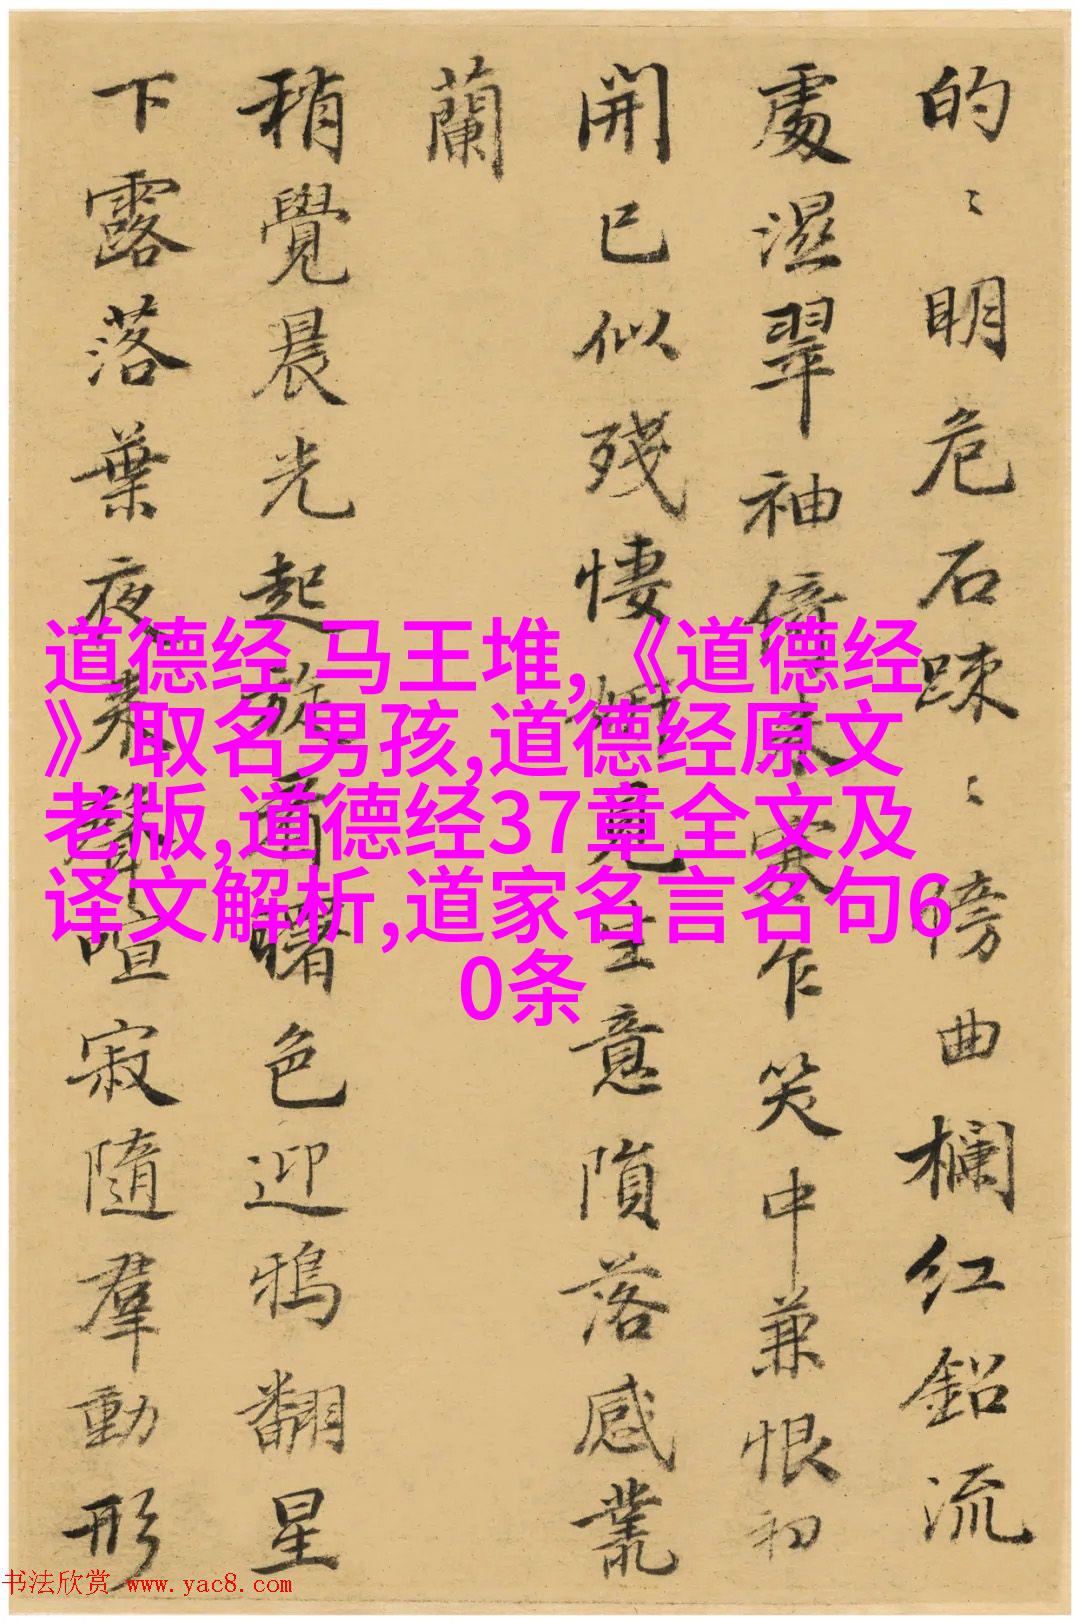 的〻明危石踈〻傍曲欄红鉛流
處濕翠袖倚来寒乍笑中兼恨初
開已似殘悽見生意隕落感叢
蘭
稍覺晨光起旋看曙色迎鴉翻星
下露落葉夜春聲喧寂隨羣動形
道德经 马王堆,《道德经
》取名男孩,道德经原文
老版,道德经37章全文及
译文解析,道家名言名句6
0条
书法欣赏 www.yac8.com